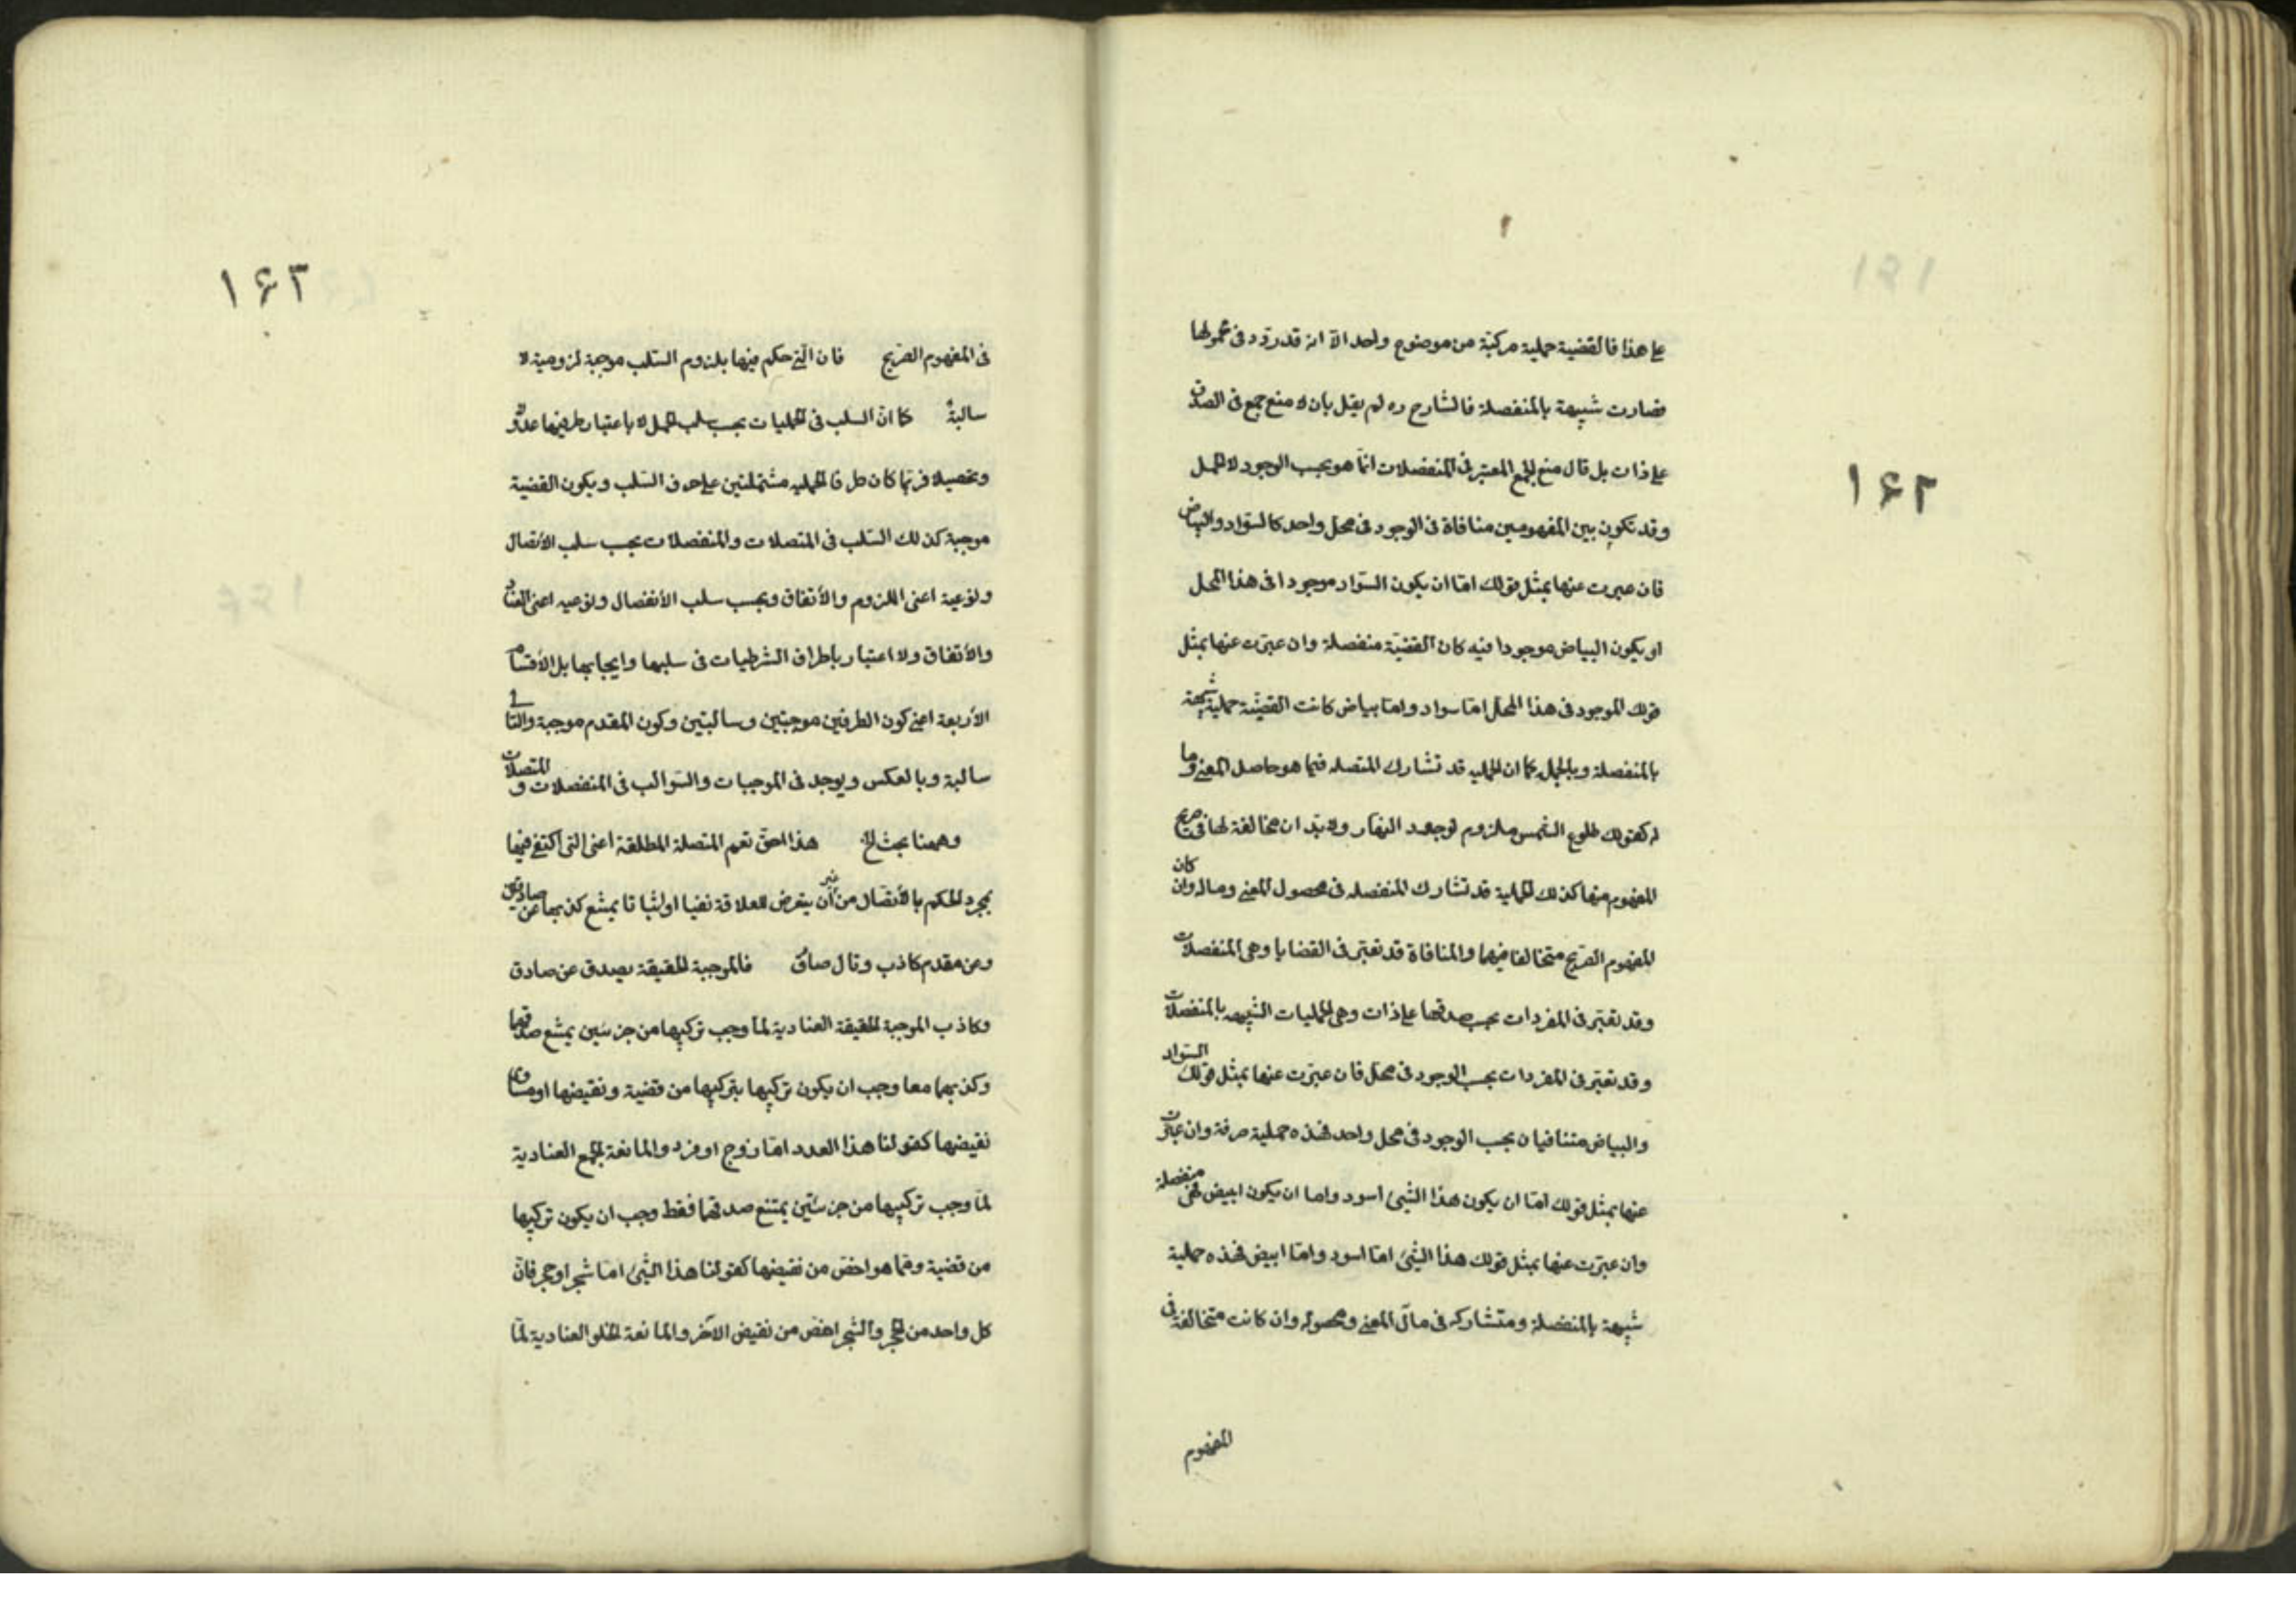 ۱۶۲
على هذا فالقضية حملية مركبة من موضوع واحد الا انه قدردد فى محمولها
فصارت شبيهة بالمنفصلة فالشارح ره لم يقل بان لا منع جمع فى الصدق
على ذات بل قال منع الجمع المعتبر فى المنفصلات انما هو بحسب الوجود لا الحمل
وقد تكون بين المفهومين منافاة فى الوجود فى محل واحد كالسواد والبياض
فان عبرت عنها بمثل قولك اما ان يكون السواد موجودا فى هذا المحل
او يكون البياض موجودا فيه كان القضية منفصلة وان عبرت عنها بمثل
قولك الموجود فى هذا المحل اما سواد واما بياض كانت القضية حملية شبيهة
بالمنفصلة وبالجملة كما ان الحملية قد تشارك المتصلة فيما هو حاصل المعنى وما
له كقولك طلوع الشمس ملزوم لوجود النهار ولا بد ان مخالفة لها فى صريح
المفهوم منها كذلك الحملية قد تشارك المنفصلة فى محصول المعنى وماله وان كان
المفهوم الصريح متخالفا فيهما والمنافاة قد تعتبر فى القضايا وهى المنفصلات
وقد تعتبر فى المفردات بحسب صدقها على ذات وهى الحمليات الشبيهة بالمنفصلات
وقد تعتبر فى المفردات بحسب الوجود فى محل فان عبرت عنها بمثل قولك السواد
والبياض متنافيان بحسب الوجود فى محل واحد فهذه حملية صرفة وان عبرت
عنها بمثل قولك اما ان يكون هذا الشئ اسود واما ان يكون ابيض فهى منفصلة
وان عبرت عنها بمثل قولك هذا الشئ اما اسود واما ابيض فهذه حملية
شبيهة بالمنفصلة ومتشاركه فى مآل المعنى ومحصوله وان كانت متخالفة فى
المفهوم
۱۶۳
فى المفهوم الصريح فان التى حكم فيها بلزوم السلب موجبة لزومية لا
سالبة كما ان السلب فى الحمليات بحسب سلب الحمل لا باعتبار طرفيها عدولا
وتحصيلا فربما كان طرفا الحملية مشتملتين على حرف السلب ويكون القضية
موجبة كذلك السلب فى المتصلات والمنفصلات بحسب سلب الاتصال
ونوعيه اعنى اللزوم والاتفاق وبحسب سلب الانفصال ونوعيه اعنى العناد
والاتفاق ولا اعتبار باطراف الشرطيات فى سلبها وايجابها بل الاقسام
الاربعة اعنى كون الطرفين موجبتين وسالبتين وكون المقدم موجبة والتالى
سالبة وبالعكس ويوجد فى الموجبات والسوالب فى المنفصلات و المتصلات
وههنا بحث الخ هذا احق نعم المتصلة المطلقة اعنى التى اكتفى فيها
بمجرد الحكم بالاتصال من غير أن يتعرض للعلاقة نفيا او اثباتا يمتنع كذبها عن صادقين
وعن مقدم كاذب وتال صادق فالموجبة الحقيقة يصدق عن صادق
وكاذب الموجبة الحقيقة العنادية لما وجب تركيبها من جزئين يمتنع صدقهما
وكذبهما معا وجب ان يكون تركيبها بتركيبها من قضية ونقيضها او مساوى
نقيضها كقولنا هذا العدد اما زوج او فرد والمانعة الجمع العنادية
لما وجب تركيبها من جزئين يمتنع صدقهما فقط وجب ان يكون تركيبها
من قضية ومما هو اخص من نقيضها كقولنا هذا الشئ اما شجر او حجر فان
كل واحد من الحجر والشجر اخص من نقيض الآخر والمانعة الخلو العنادية لما